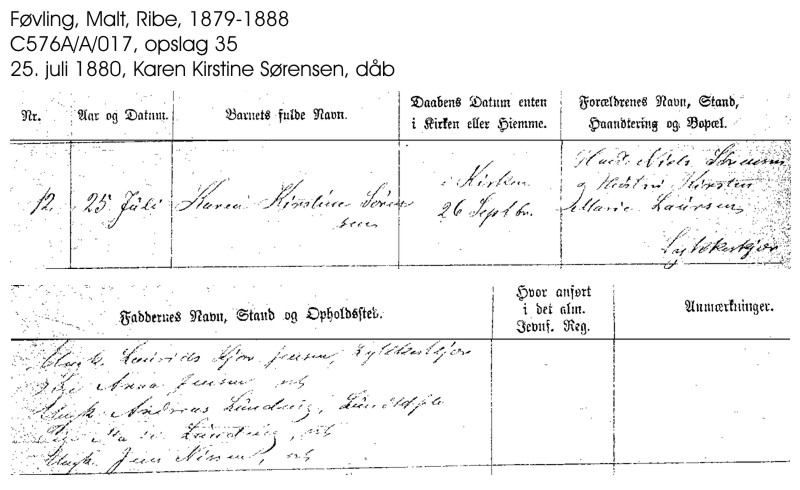 Føvling, Malt, Ribe, 1879-1888
C576A/A/017, opslag 35
25. juli 1880, Karen Kirstine Sørensen, dåb
Nr.
Aar og Datum.
Barnets fulde Navn.
Daabens Datum enten
i Kirken eller Hiemme.
Forældrenes Navn, Stand,
Haandtering og Bopæl.
12.
25 Juli
Karen Kirstine Sören
sen
i Kirken
26 Septbr.
Niels Sörensen
og Hustru Kirsten
Marie Laursen
Faddernes Navn, Stand og Opholdssted.
Hvor anført
i det alm.
Jevnf. Reg.
Anmærkninger.
Ungk. Laurids Kjær Jensen,
Pige Anna Jensen
Ungk. Andreas Lunding,
Pige Lunding,
Ungk. Jens Nissen,